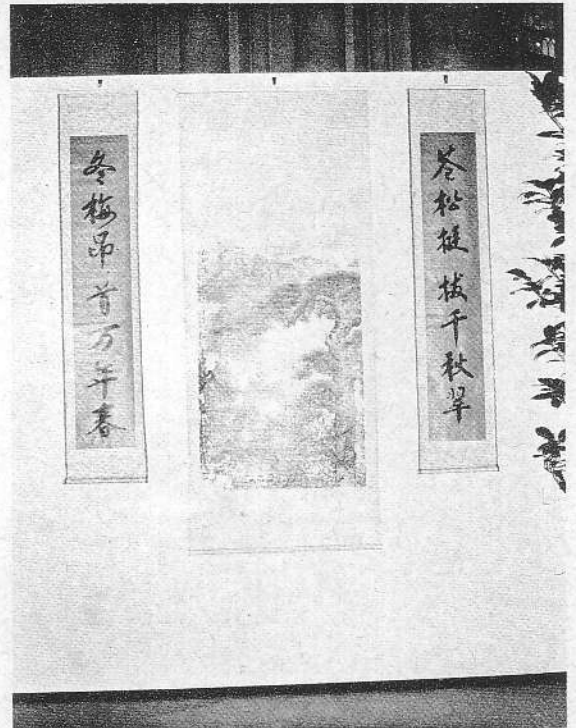 苍松挺拔千秋翠
冬梅昂首万年春